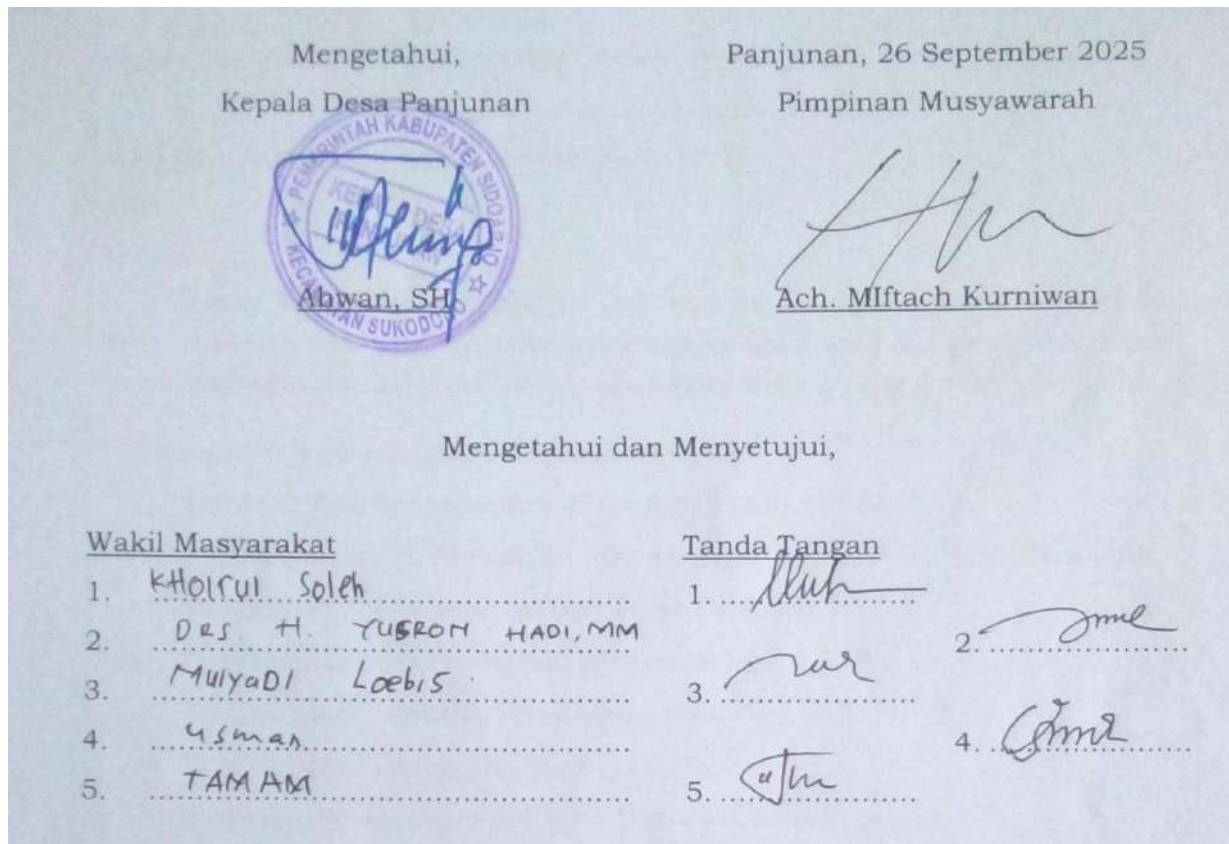 Mengetahui,
Kepala Desa Panjunan
PEMERINTAH KABUPATEN SIDOARJO
KEPALA DESA
KECAMATAN SUKODONO
Ahwan, SH
Panjunan, 26 September 2025
Pimpinan Musyawarah
Ach. MIftach Kurniwan
Mengetahui dan Menyetujui,
Wakil Masyarakat
1. KHoirul Soleh
2. DRS. H. YUSRON HADI, MM
3. MulyaDI Loebis
4. Usman
5. TAMAM
Tanda Tangan
1.
2.
3.
4.
5.